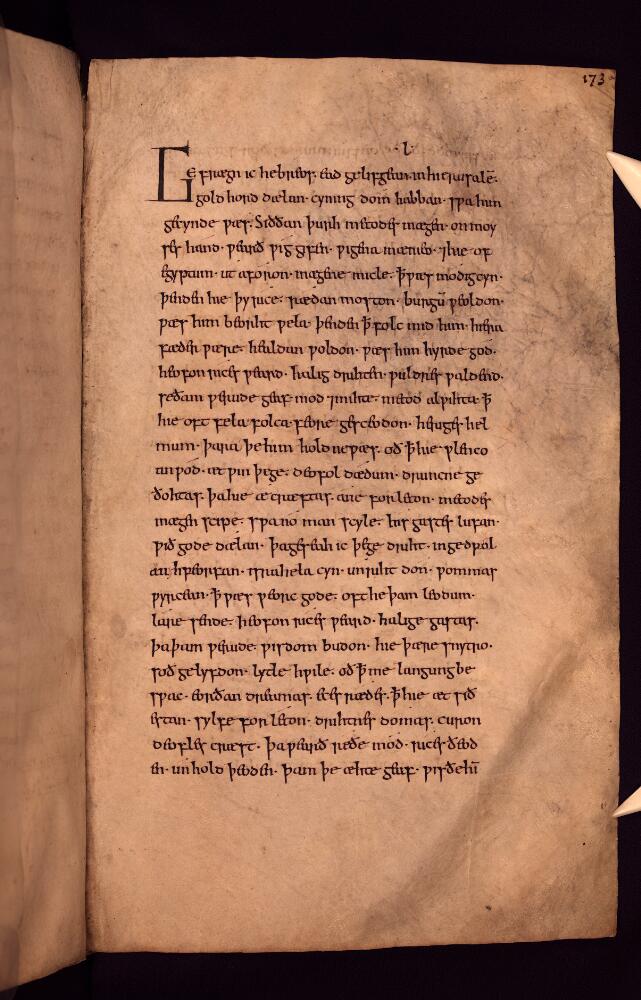 173
·l·
Gefrægn ic hebreos· ead gelifgean· in hierusalē·
gold hord dælan· cyning dom habban· swa him
gecynde wæs· Siððan þurh metodes mægen· on moy
ses hand· wearð wig gifen· wigena mænieo· ⁊hie of
egyptum· ut aforon· mægene micle· ꝥwæs modig cyn·
þenden hie þy rice· rædan moston· burgū weoldon·
wæs him beorht wela· þenden ꝥ folc mid him· hiera
fæder wære· healdan woldon· wæs him hyrde god·
heofon rices weard· halig drihten· wuldres waldend·
se ðam werude geaf· mod ⁊mihte· metod alwihta· ꝥ
hie oft fela folca· feore gesceodon· heriges hel
mum· þara þe him hold ne wæs· oð ꝥ hie wlenco
anwod· æt win þege· deofol dædum· druncne ge
ðohtas· þa hie æcræftas· ane forleton· metodes
mægen scipe· swa no man scyle· his gastes lufan·
wið gode dælan· þa geseah ic þe gedriht· in gedwol
an hweorfan· israhela cyn· unriht don· wommas
wyrcean· ꝥ wæs weorc gode· oft he þam leodum·
lare sende· heofon rices weard· halige gastas·
þa þam werude· wisdom budon· hie þære snytro·
soð gelyfdon· lytle hwile· oð ꝥ me langung be
swac· eorðan dreamas· eces rædes· ꝥhie æt sið
estan· sylfe forleton· drihtnes domas· curon
deofles cræft· þa wearð reðe mod· rices ðeod
en· unhold þeoden· þam þe æhte geaf· wisðe hī